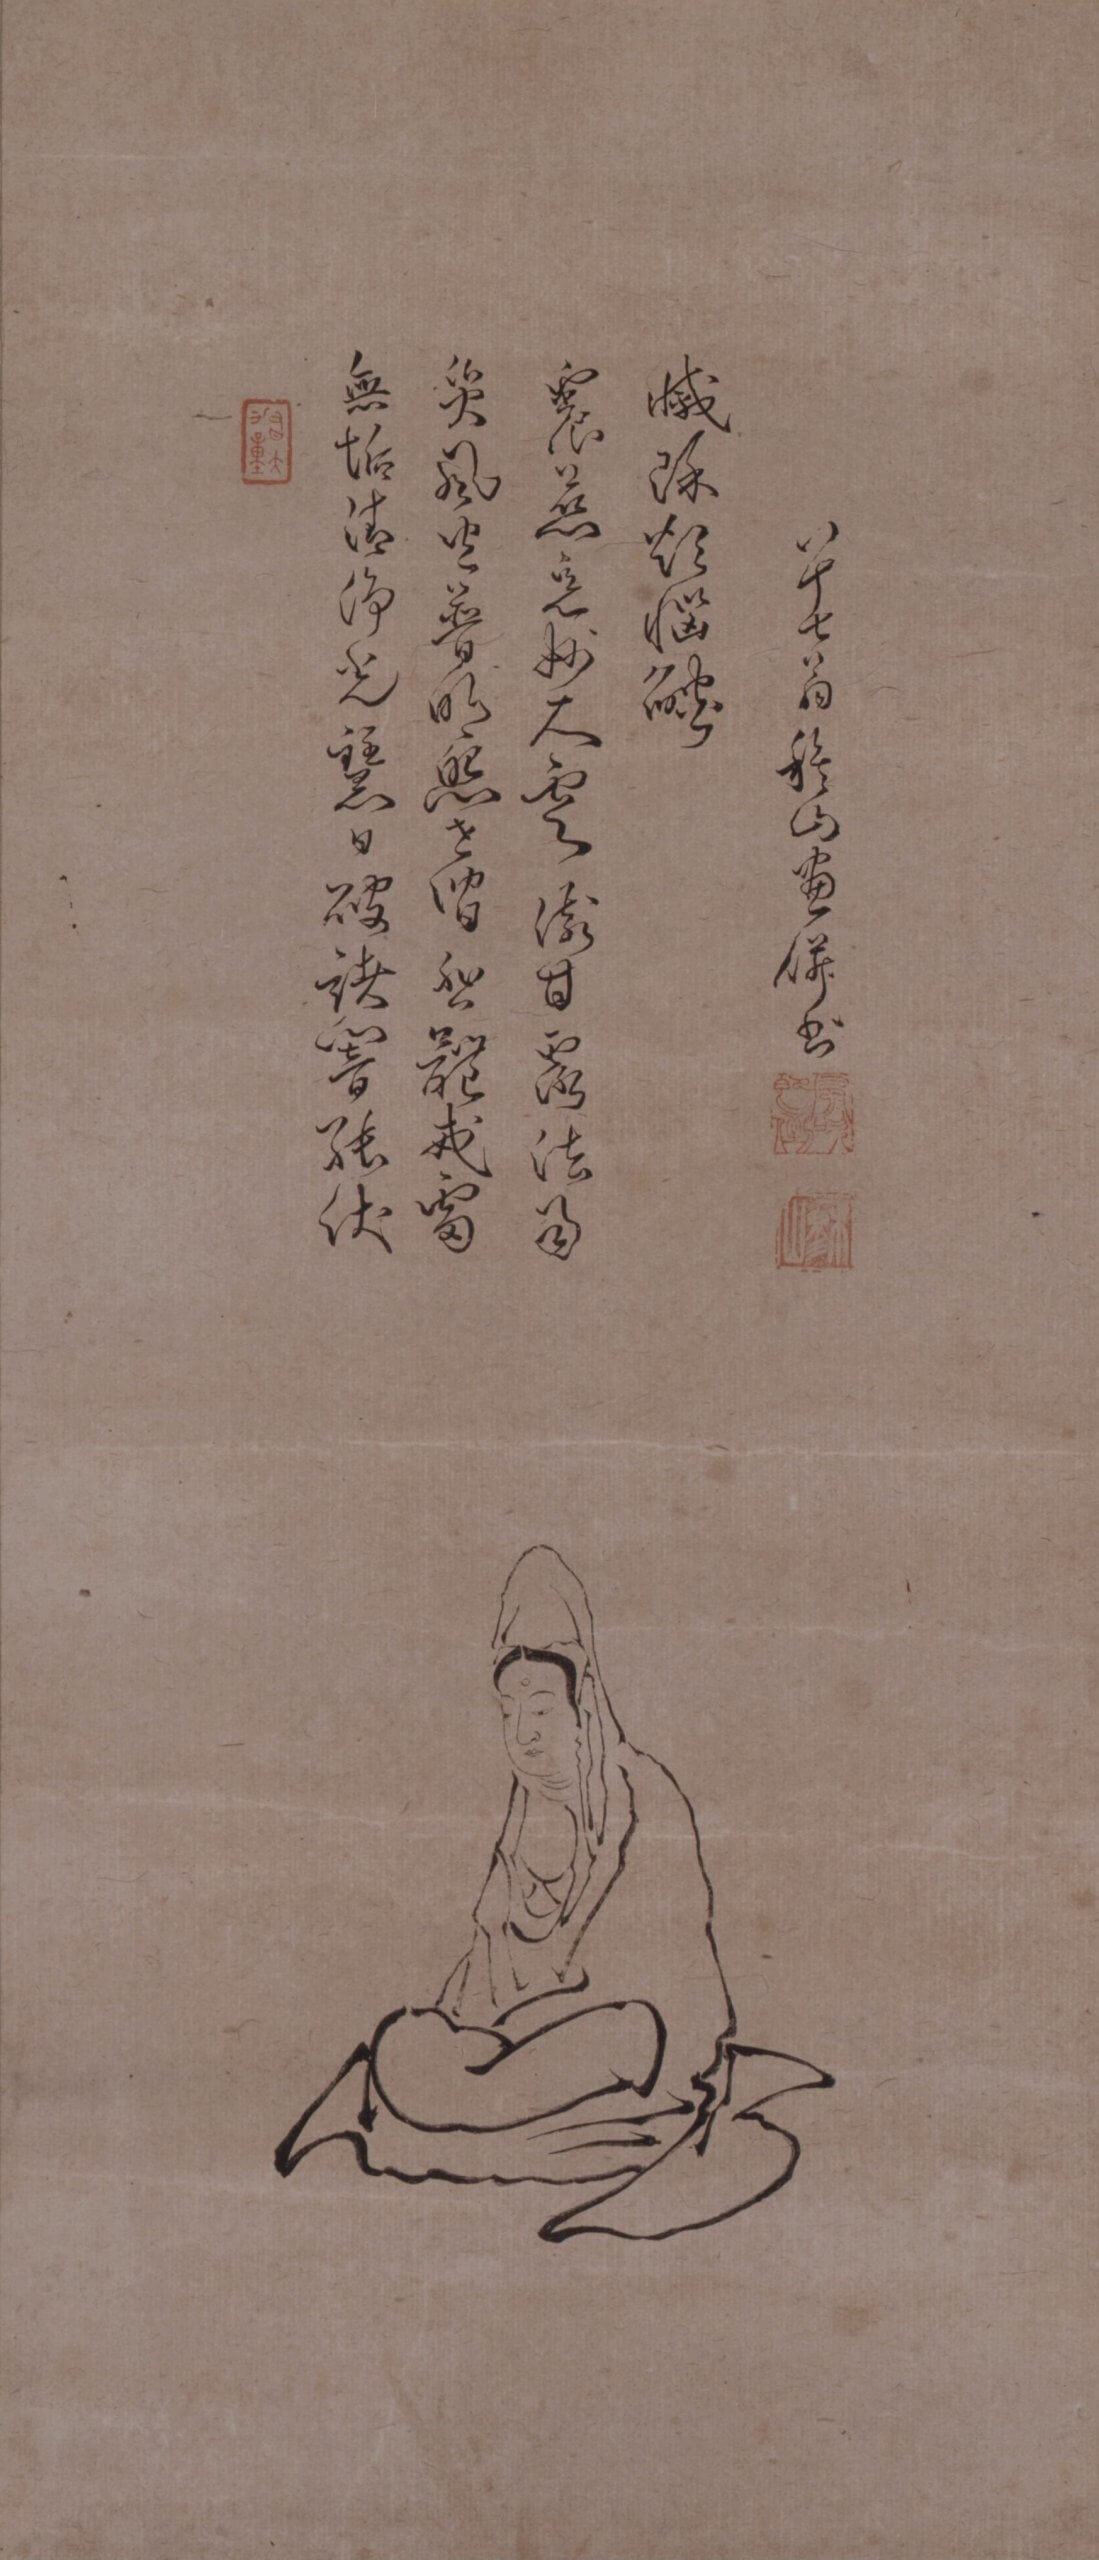 無垢清浄光慧日破諸闇能伏
災風火普明照世間悲體戒雷
震慈意妙大雲澍甘露法雨
滅除煩惱燄
八十七翁穆山畫併書